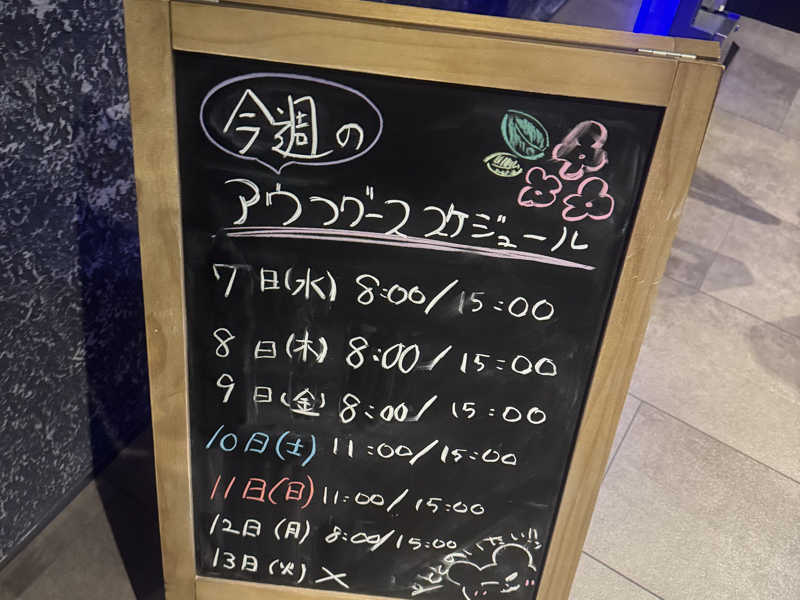 今週の
アウフグーススケジュール
7日(水) 8:00/15:00
8日(木) 8:00/15:00
9日(金) 8:00/15:00
10日(土) 11:00/15:00
11日(日) 11:00/15:00
12日(月) 8:00/15:00
13日(火) ×
ととのいたい!!